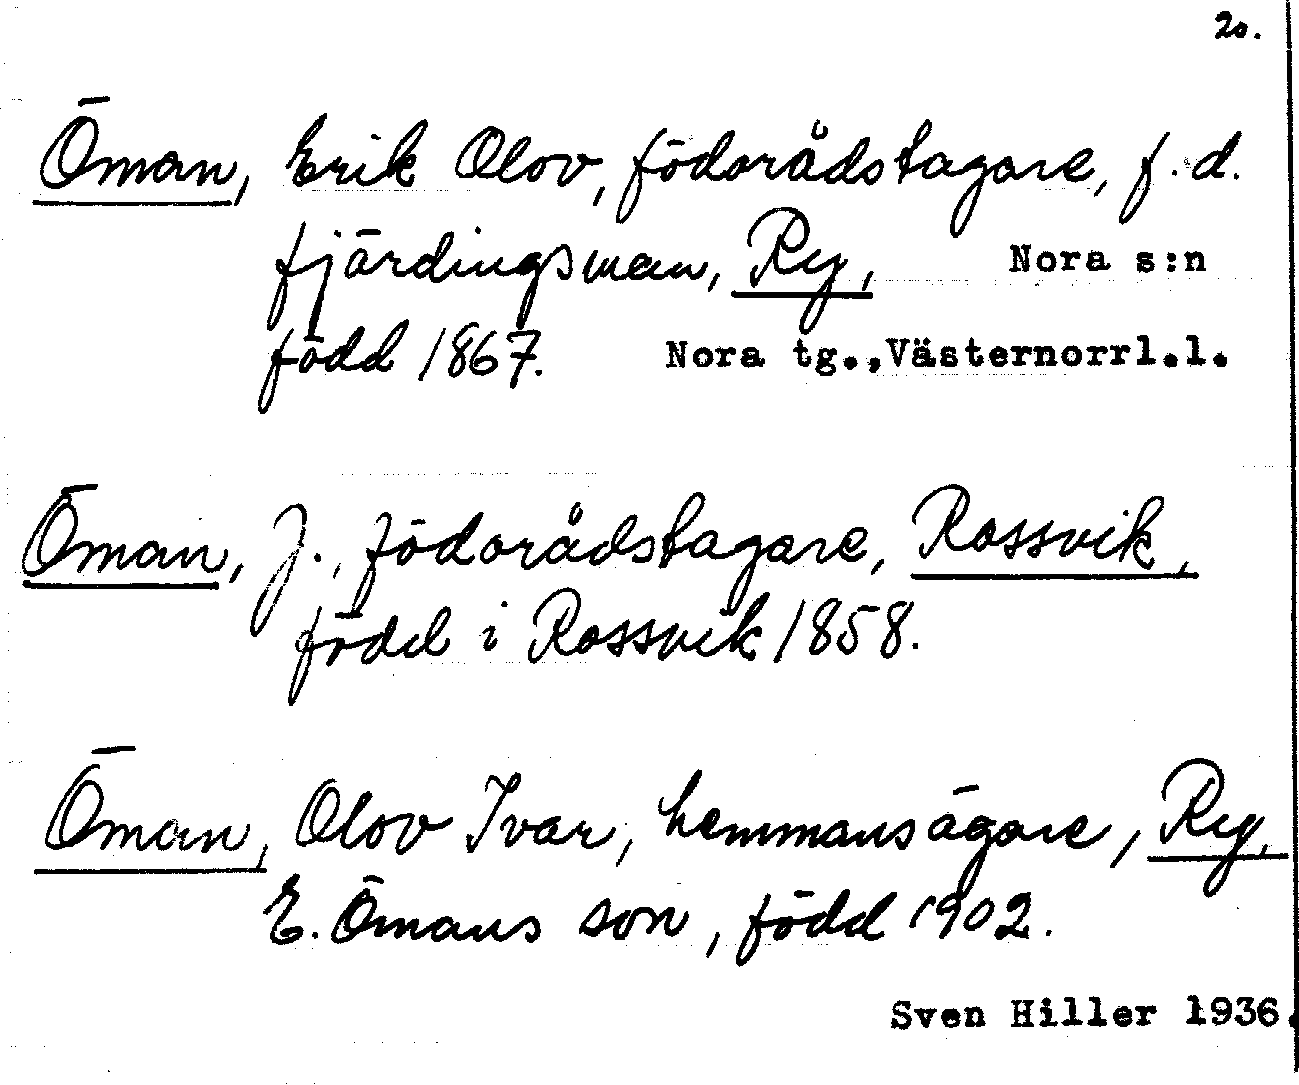 20.
Öman, Erik Olov, födorådstagare, f.d.
fjärdingsman, Ry, Nora s:n
född 1867. Nora tg.,Västernorrl.l.
Öman, J., födorådstagare, Rossvik,
född i Rossvik 1858.
Öman, Olov Ivar, hemmansägare, Ry,
E. Ömans son, född 1902.
Sven Hiller 1936.